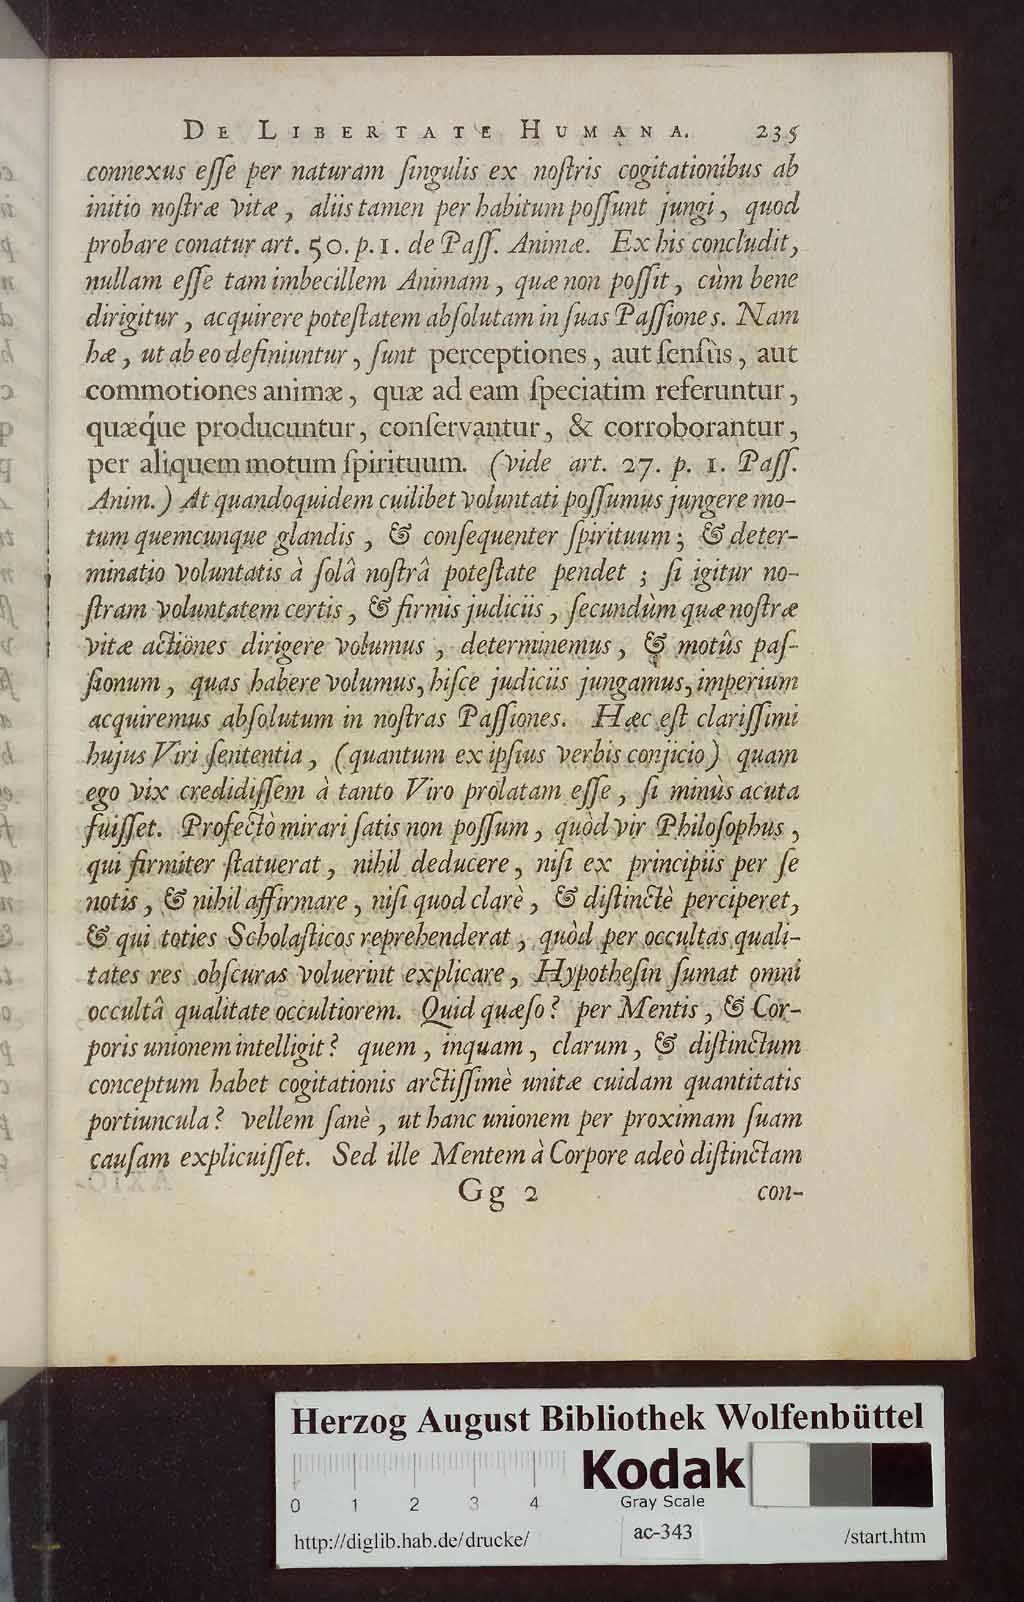 DE LIBERTATE HUMANA. 235
connexus eſſe per naturam ſingulis ex noſtris cogitationibus ab
initio noſtræ vitæ, aliis tamen per habitum poſſunt jungi, quod
probare conatur art. 50. p. 1. de Paſſ. Animæ. Ex his concludit,
nullam eſſe tam imbecillem Animam, quæ non poſſit, cùm bene
dirigitur, acquirere poteſtatem abſolutam in ſuas Paſſiones. Nam
hæ, ut ab eo definiuntur, ſunt perceptiones, aut ſenſûs, aut
commotiones animæ, quæ ad eam ſpeciatim referuntur,
quæq́ue producuntur, conſervantur, & corroborantur,
per aliquem motum ſpirituum. (vide art. 27. p. 1. Paſſ.
Anim.) At quandoquidem cuilibet voluntati poſſumus jungere mo-
tum quemcunque glandis, & conſequenter ſpirituum; & deter-
minatio voluntatis à ſolâ noſtrâ poteſtate pendet; ſi igitur no-
ſtram voluntatem certis, & firmis judiciis, ſecundùm quæ noſtræ
vitæ actiones dirigere volumus, determinemus, & motûs paſ-
ſionum, quas habere volumus, hiſce judiciis jungamus, imperium
acquiremus abſolutum in noſtras Paſſiones. Hæc eſt clariſſimi
hujus Viri ſententia, (quantum ex ipſius verbis conjicio) quam
ego vix credidiſſem à tanto Viro prolatam eſſe, ſi minùs acuta
fuiſſet. Profectò mirari ſatis non poſſum, quòd vir Philoſophus,
qui firmiter ſtatuerat, nihil deducere, niſi ex principiis per ſe
notis, & nihil affirmare, niſi quod clarè, & diſtinctè perciperet,
& qui toties Scholaſticos reprehenderat, quòd per occultas quali-
tates res obſcuras voluerint explicare, Hypotheſin ſumat omni
occultâ qualitate occultiorem. Quid quæſo? per Mentis, & Cor-
poris unionem intelligit? quem, inquam, clarum, & diſtinctum
conceptum habet cogitationis arctiſſimè unitæ cuidam quantitatis
portiuncula? vellem ſanè, ut hanc unionem per proximam ſuam
cauſam explicuiſſet. Sed ille Mentem à Corpore adeò diſtinctam
Gg 2 con-
Herzog August Bibliothek Wolfenbüttel
0 1 2 3 4
Kodak
Gray Scale
http://diglib.hab.de/drucke/ ac-343 /start.htm